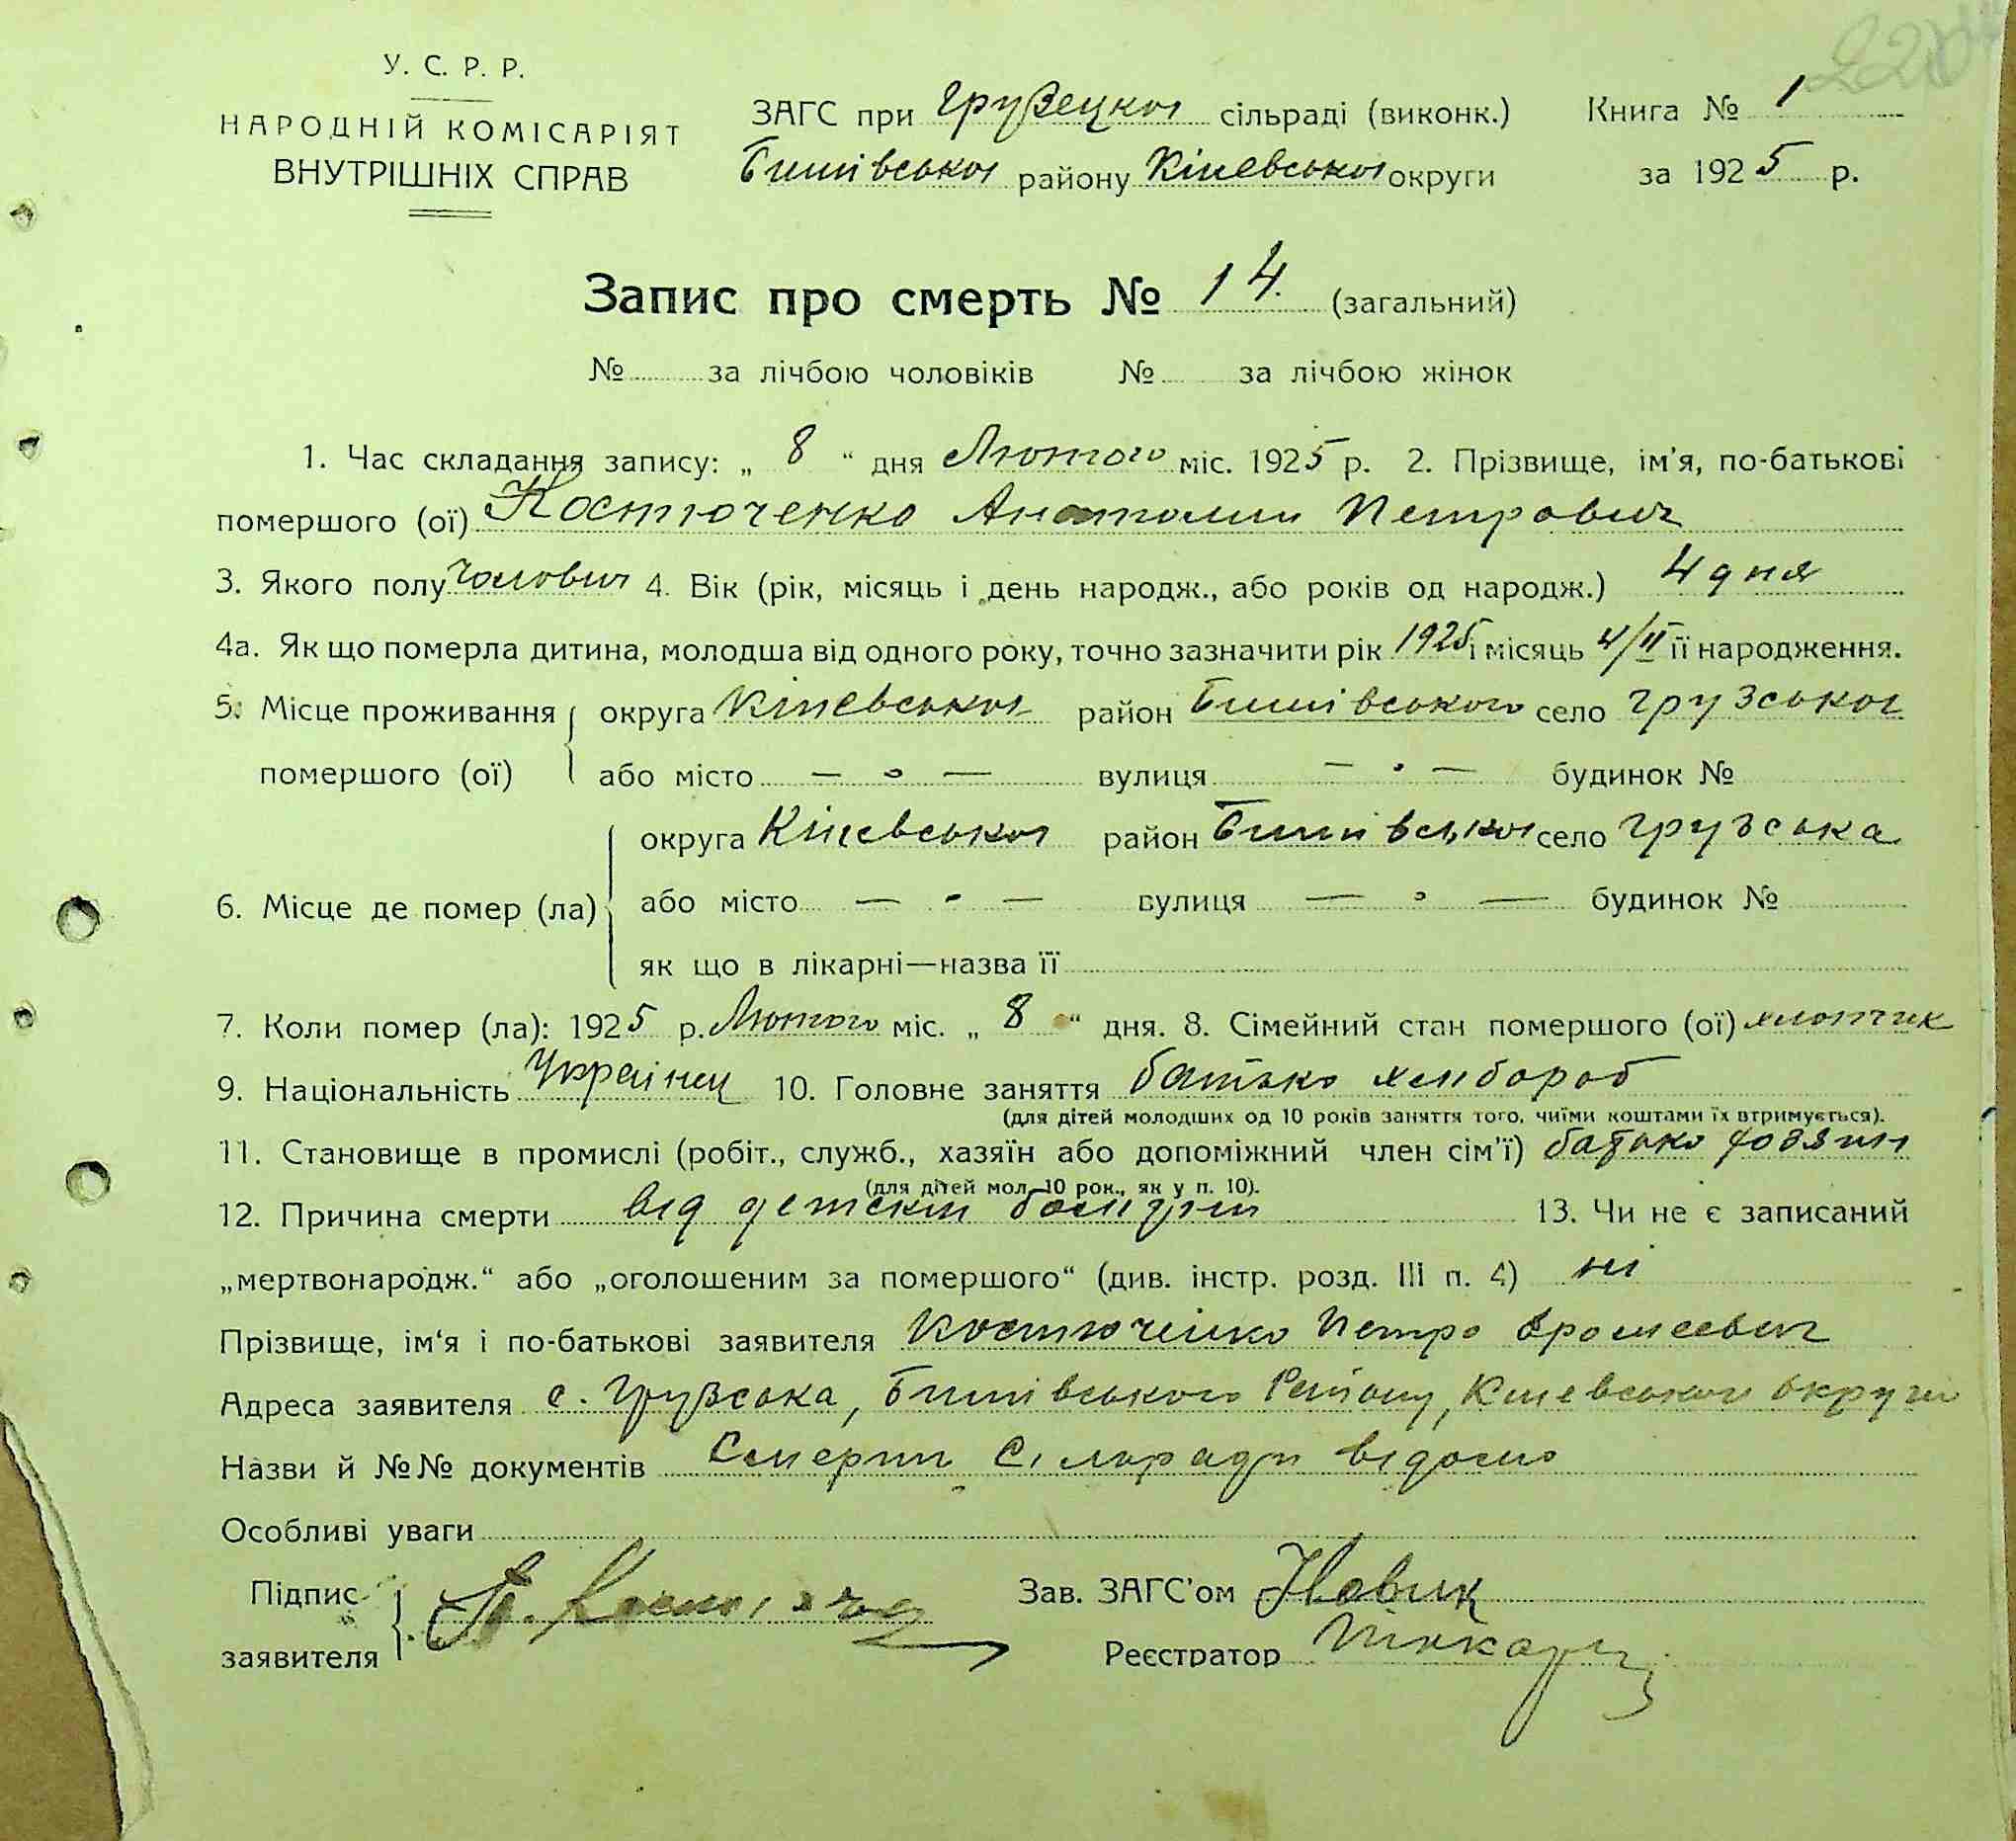 У. С. Р. Р.
НАРОДНІЙ КОМІСАРІЯТ
ВНУТРІШНІХ СПРАВ
ЗАГС при Грузецкої сільраді (виконк.) Книга № 1
Бишівської району Кіиевської округи за 1925 р.
Запис про смерть № 14 (загальний)
№ за лічбою чоловіків № за лічбою жінок
1. Час складання запису: „ 8 “ дня Лютого міс. 1925 р. 2. Прізвище, ім'я, по-батькові
помершого (ої) Костюченко Анатолии Петрович
3. Якого полу 4. Вік (рік, місяць і день народж., або років од народж.) 4 дня
4а. Як що померла дитина, молодша від одного року, точно зазначити рік 1925 і місяць 4/II її народження.
5. Місце проживання округа Кіиевської район Бишівського село Грузської
помершого (ої) або місто — о — вулиця — • — будинок №
округа Кіиевської район Бишівської село Грузська
6. Місце де помер (ла) або місто — • — вулиця — о — будинок №
як що в лікарні—назва її
7. Коли помер (ла): 1925 р. Лютого міс. „ 8 “ дня. 8. Сімейний стан помершого (ої) хлопчик
9. Національність Украінец 10. Головне заняття батько хлибороб
(для дітей молодших од 10 років заняття того, чиїми коштами їх втримується).
11. Становище в промислі (робіт., служб., хазяїн або допоміжний член сім'ї) батько
(для дітей мол. 10 рок., як у п. 10).
12. Причина смерти від 13. Чи не є записаний
„мертвонародж.“ або „оголошеним за помершого“ (див. інстр. розд. III п. 4) ні
Прізвище, ім'я і по-батькові заявителя Костюченко Петро
Адреса заявителя с. Грузська, Бишівського Району, Киевської округи
Назви й №№ документів Смерть Сільради відомо
Особливі уваги
Підпис Зав. ЗАГС'ом Новик
заявителя Реєстратор